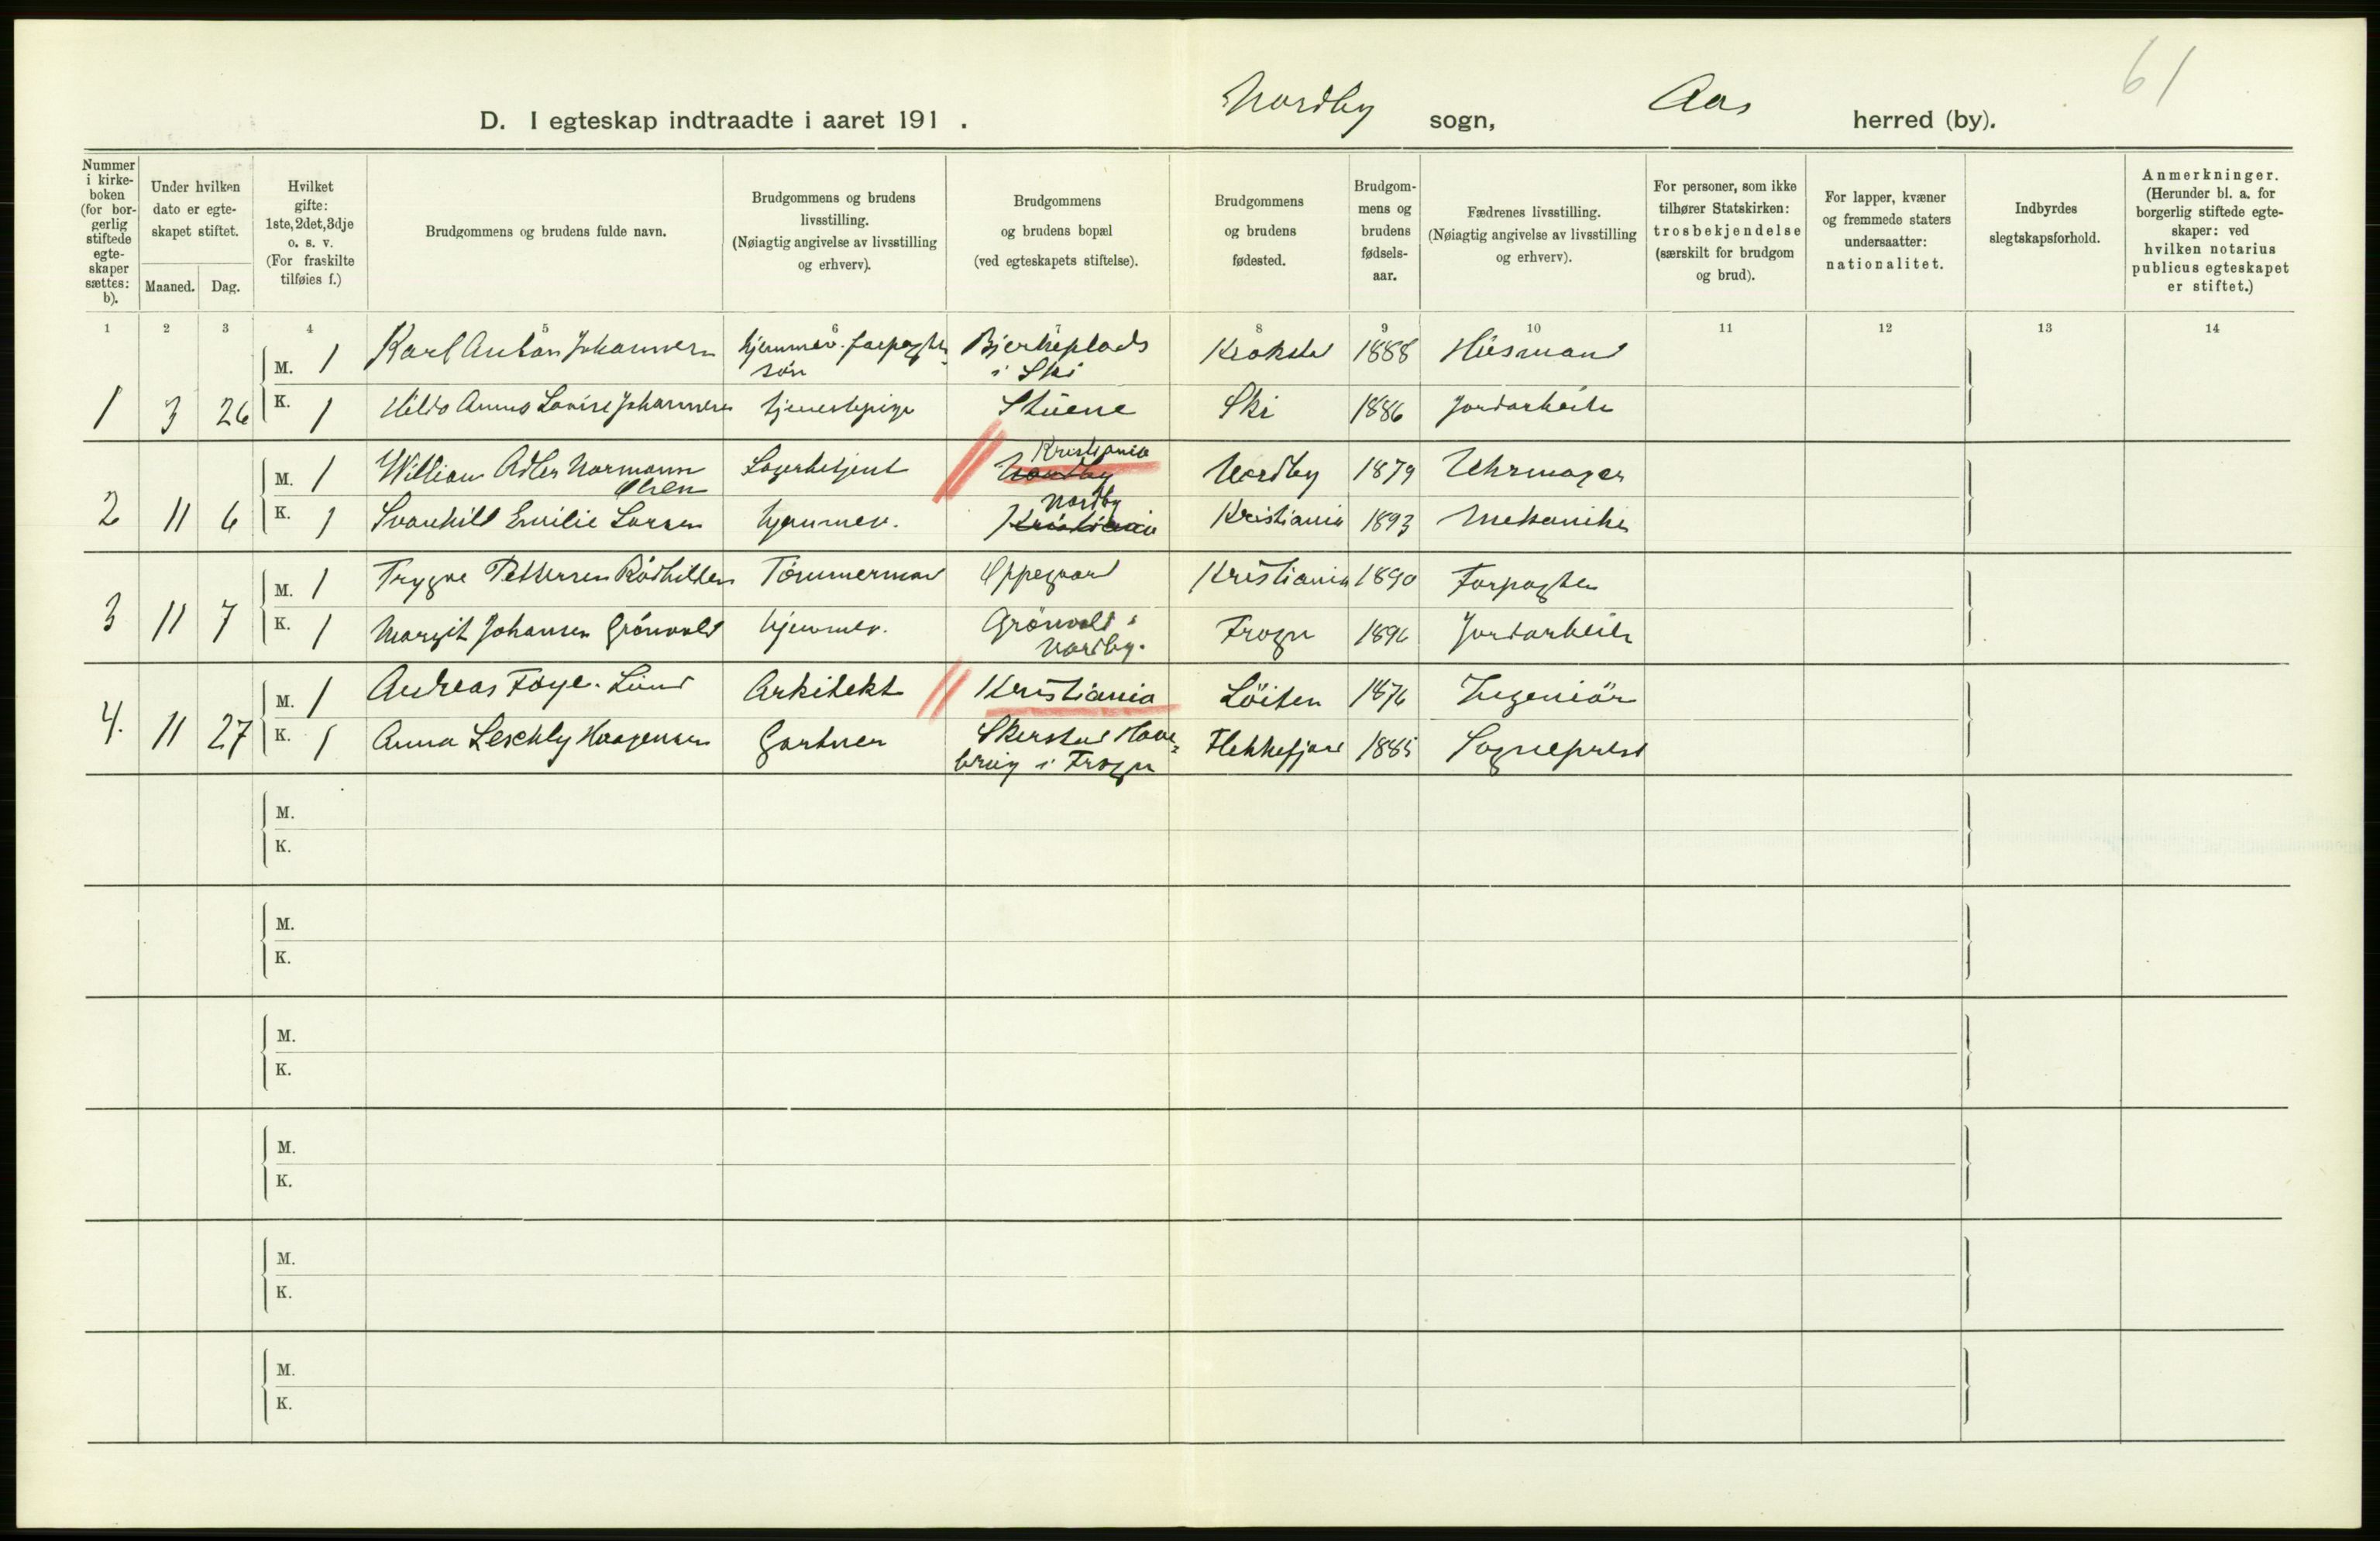 61
D. I egteskap indtraadte i aaret 191 . Nordby sogn, Aas herred (by).
Nummer i kirke-boken (for bor-gerlig stiftede egte-skaper sættes: b).
Under hvilken dato er egte-skapet stiftet.
Maaned. Dag.
Hvilket gifte: 1ste, 2det, 3dje o. s. v. (For fraskilte tilføies f.)
Brudgommens og brudens fulde navn.
Brudgommens og brudens livsstilling. (Nøiagtig angivelse av livsstilling og erhverv).
Brudgommens og brudens bopæl (ved egteskapets stiftelse).
Brudgommens og brudens fødested.
Brudgom-mens og brudens fødsels-aar.
Fædrenes livsstilling. (Nøiagtig angivelse av livsstilling og erhverv).
For personer, som ikke tilhører Statskirken: trosbekjendelse (særskilt for brudgom og brud).
For lapper, kvæner og fremmede staters undersaatter: nationalitet.
Indbyrdes slegtskapsforhold.
Anmerkninger. (Herunder bl. a. for borgerlig stiftede egte-skaper: ved hvilken notarius publicus egteskapet er stiftet.)
1 2 3 4 5 6 7 8 9 10 11 12 13 14
M. 1 Karl Anton Johannesen hjemmev. forpagter- Bjerkeplads Krokstad 1888 Husmand
søn i Ski
1 3 26 K. 1 Hilda Anna Lovise Johannesen tjenestepige Stuene Ski 1886 Jordarbeider
Kristiania
M. 1 William Adler Normann Lagerbetjent Nordby Nordby 1879 Uhrmager
Olsen
Nordby
2 11 6 K. 1 Svanhild Emilie Larsen hjemmev. Kristiania Kristiania 1893 Mekaniker
M. 1 Trygve Pettersen Tömmermand Oppegaard Kristiania 1890 Forpagter
3 11 7 K. 1 Margit Johansen Grönvold hjemmev. Grönvold i Frogn 1896 Jordarbeider
Nordby.
M. 1 Andreas Föyn Lund Arkitekt Kristiania Löiten 1876 Ingeniör
4. 11 27 K. 1 Anna Leschly Haagensen Gartner Have- Flekkefjord 1885 Sogneprest
brug i Frogn
M.
K.
M.
K.
M.
K.
M.
K.
M.
K.
M.
K.